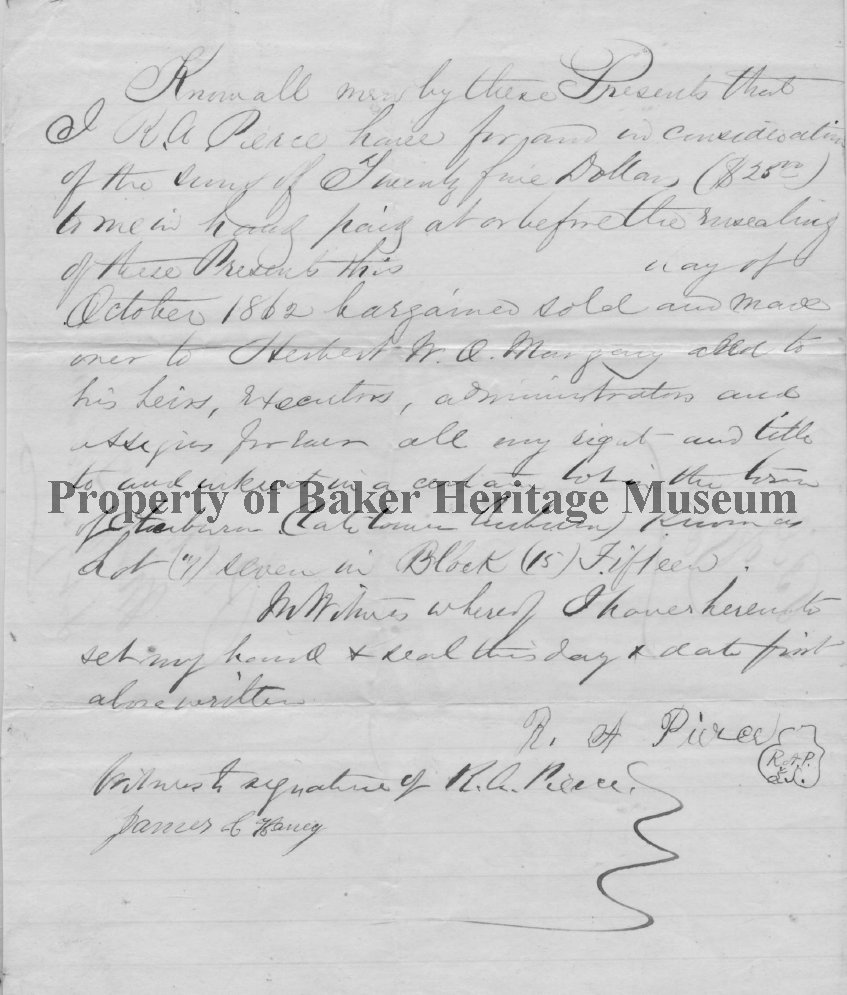 Know all men by these Presents that
I R. A Pierce have for and in consideration
of the sum of Twenty five Dollars ($25 00)
to me in hand paid at or before the ensealing
of these Presents this day of
October 1862 bargained sold and made
over to Herbert W. O. Margary and to
his heirs, Executors, administrators and
assigns forever all my right and title
to and interest in a certain lot in the town
Property of Baker Heritage Museum
of Auburn (late town Auburn) Known as
Lot (7) seven in Block (15) Fifteen.
In Witness whereof I have hereunto
set my hand & seal this day & date first
above written
R. A Pierce
R.A.P.
Witness to signature of R. A. Pierce.
James C Haney